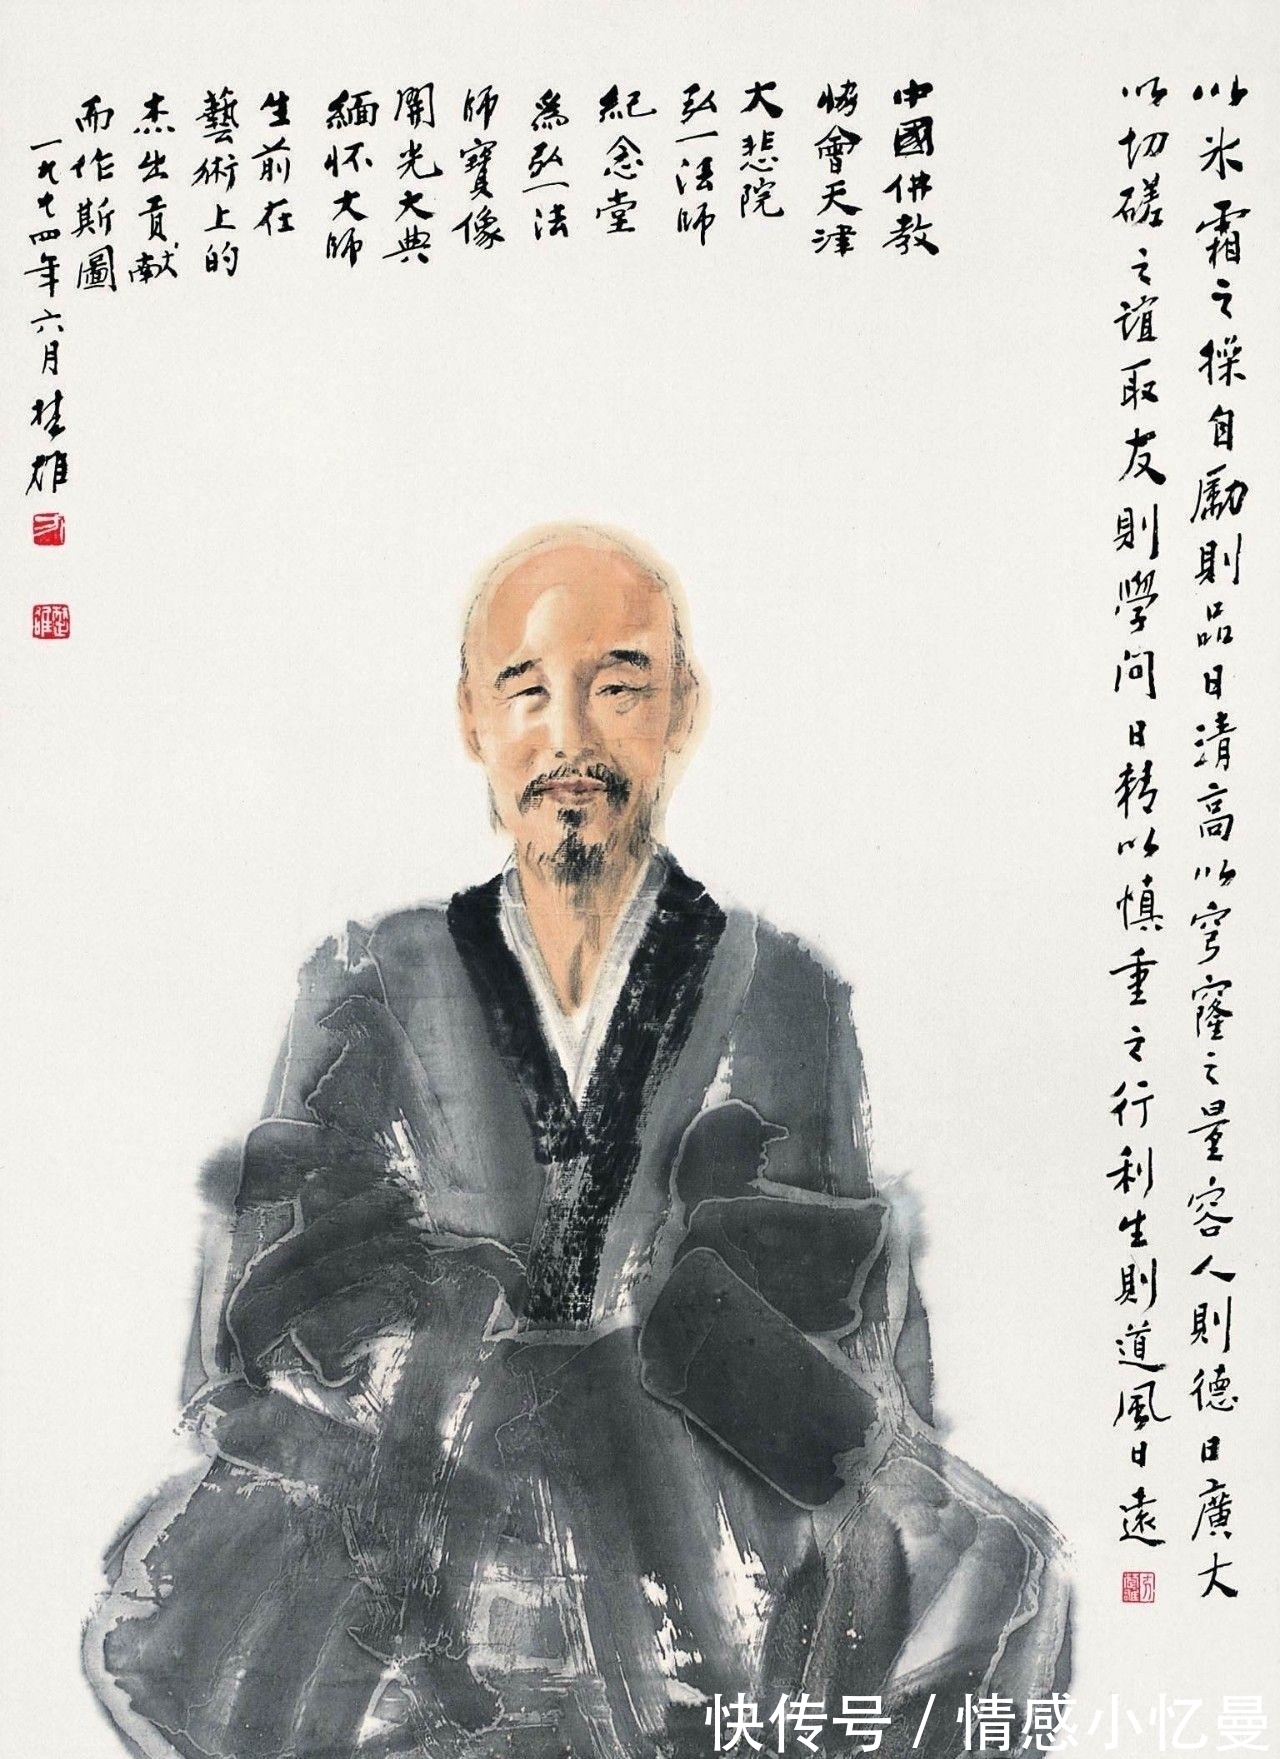 以氷霜之操自勵則品日清高以穹窿之量容人則德日廣大
以切磋之誼取友則學問日精以慎重之行利生則道風日遠
中國佛教
恊會天津
大悲院
弘一法師
紀念堂
爲弘一法
師寶像
開光大典
緬怀大師
生前在
藝術上的
杰出貢献
而作斯圖
一九九四年六月楚雄
方
楚雄
快传号 / 情感小忆曼